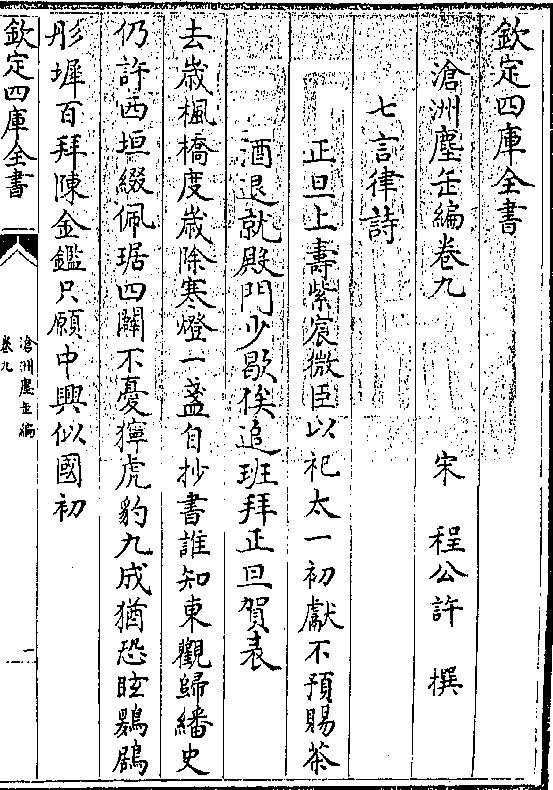 欽定四庫全書
滄洲塵缶編卷九
宋 程公許 撰
七言律詩
正旦上壽紫宸微臣以祀太一初獻不預賜茶
酒退就殿門少歇俟追班拜正旦賀表
去歲楓橋度歲除寒燈一盞自抄書誰知東觀歸繙史
仍許西垣綴佩琚四闢不憂獰虎豹九成猶恐眩鶢鶋
彤墀百拜陳金鑑只願中興似國初
欽定四庫全書
滄洲塵缶編
卷九
一